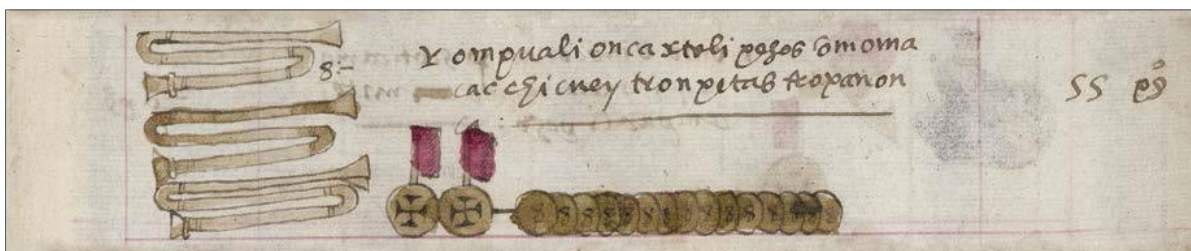 8 Yompuali oncaxtoli pesos omoma
cac chicuey tronpetas tropanon
55 ps